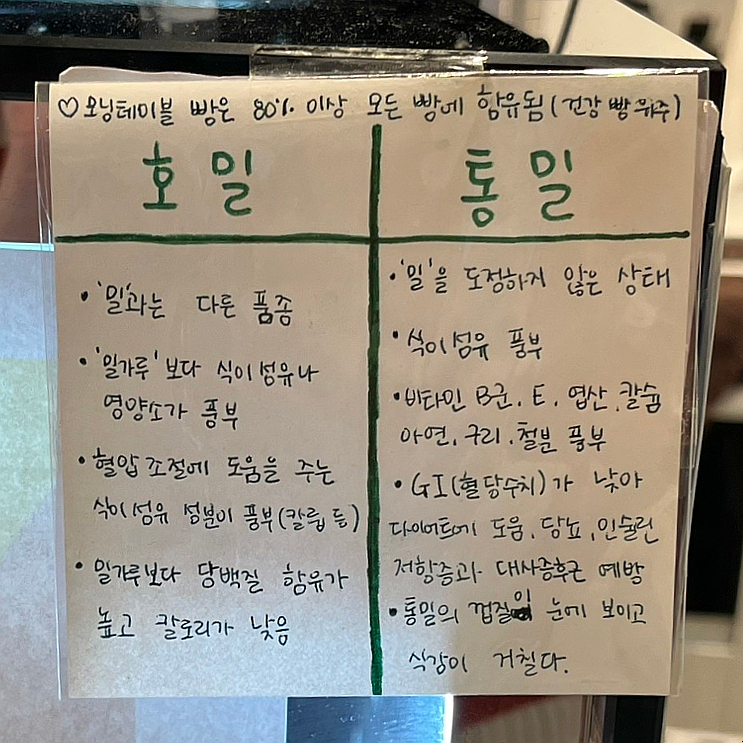 ♡모닝테이블 빵은 80% 이상 모든 빵에 함유됨 (건강 빵 위주)
호밀
• '밀'과는 다른 품종
• '밀가루' 보다 식이섬유나
영양소가 풍부
• 혈압 조절에 도움을 주는
식이섬유 성분이 풍부(칼륨 등)
• 밀가루보다 단백질 함유가
높고 칼로리가 낮음
통밀
• '밀'을 도정하지 않은 상태
• 식이섬유 풍부
• 비타민 B군, E, 엽산, 칼슘
아연, 구리, 철분 풍부
• GI(혈당수치)가 낮아
다이어트에 도움, 당뇨, 인슐린
저항증과 대사증후군 예방
• 통밀의 껍질이 눈에 보이고
식감이 거칠다.